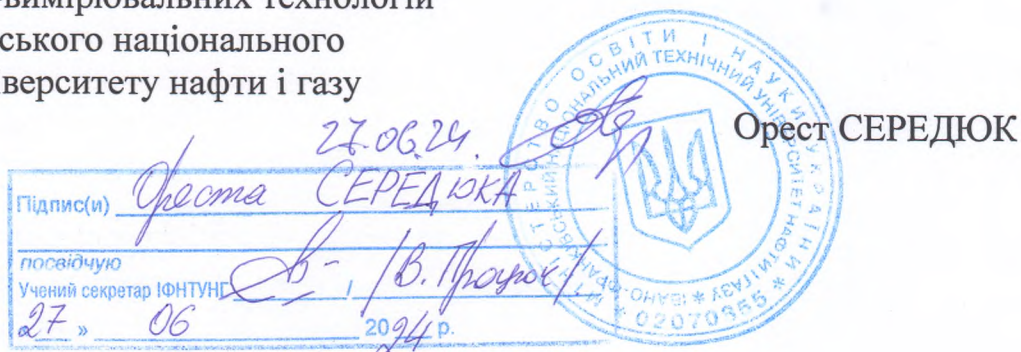 -вимірювальних технологій
ського національного
верситету нафти і газу
27.06.24.
Орест СЕРЕДЮК
Підпис(и) Ореста СЕРЕДЮКА
посвідчую
Учений секретар ІФНТУНГ / /В. Процюк/.
27 » 06 2024 р.
МІНІСТЕРСТВО ОСВІТИ І НАУКИ УКРАЇНИ * 02070855 *
ІВАНО-ФРАНКІВСЬКИЙ НАЦІОНАЛЬНИЙ ТЕХНІЧНИЙ УНІВЕРСИТЕТ НАФТИ І ГАЗУ *